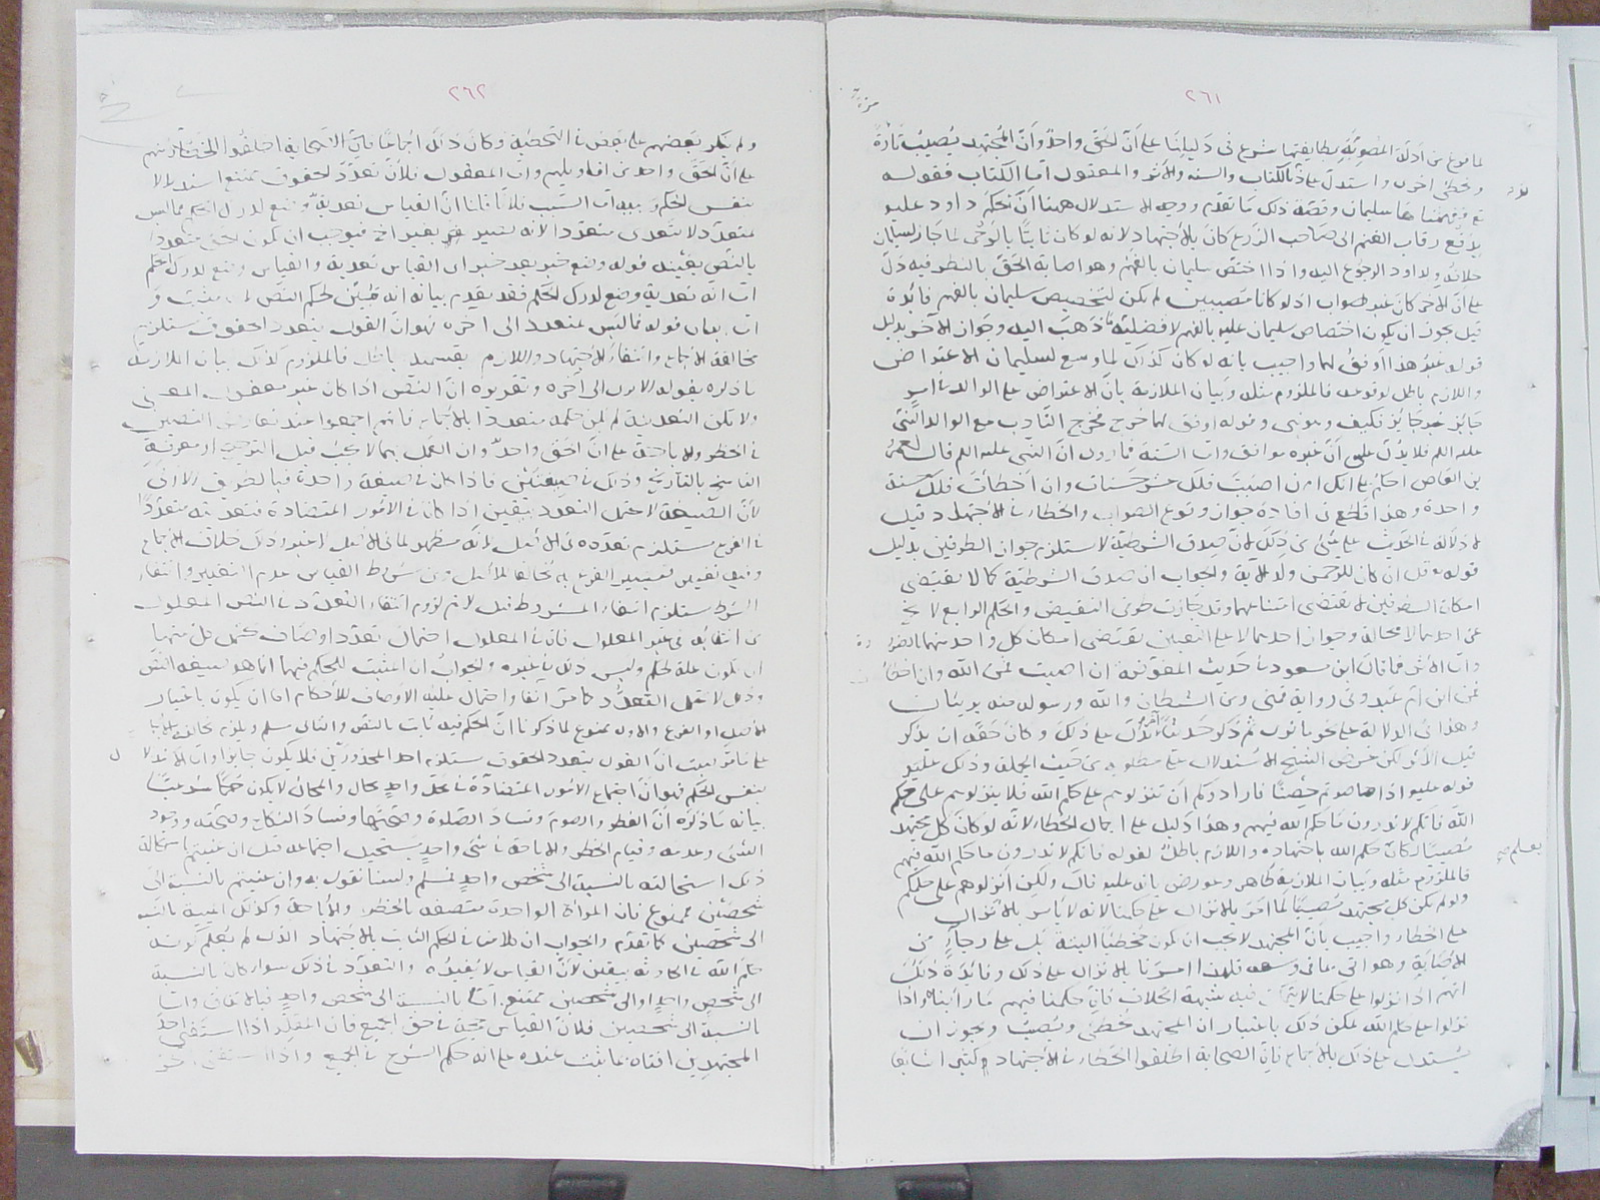 ٢٦١
لما فرغ من أدلة المصوبة بطايفتيها شرع في دليلنا على أن الحق واحد وأن المجتهد يصيب تارة
ويخطئ اخرى واستدل على ذلك بالكتاب والسنة والأثر والمعقول أما الكتاب فقوله
تع ففهمناها سليمان وقصة ذلك ما تقدم ووجه الاستدلال ههنا أن حكم داود عليه
بدفع رقاب الغنم الى صاحب الزرع كان بالاجتهاد لانه لو كان ثابتا بالوحي لما جاز لسليمان
خلافه ولداود الرجوع اليه واذا اختص سليمان بالفهم وهو اصابة الحق بالنظر فيه دل
على ان الاخر كان غير صواب اذ لو كانا مصيبين لم يكن لتخصيص سليمان بالفهم فائدة
قيل يجوز ان يكون اختصاص سليمان عليه بالفهم لافضلية ما ذهب اليه وجواز الآخر بدليل
قوله غير هذا اوفق لهما واجيب بانه لو كان كذلك لما وسع لسليمان الاعتراض
واللازم باطل لوقوعه فالملزوم مثله وبيان الملازمة بان الاعتراض على الوالد بأمر
جائز غير جائز فكيف وهو نبي وقوله اوفق لهما خرج مخرج التأدب مع الوالد النبي
عليه السلم فلا يدل على أن غيره موافق وأما السنة فما روى أن النبي عليه السلم قال لعمرو
بن العاص احكم على انك ان اصبت فلك عشر حسنات وان اخطأت فلك حسنة
واحدة وهذا قاطع في افادة جواز وقوع الصواب والخطاء في الاجتهاد وقيل
لا دلالة في الحديث على شئ من ذلك لان صدق الشرطية لا يستلزم جواز الطرفين بدليل
قوله تع قل ان كان للرحمن ولد الآية والجواب ان صدق الشرطية كما لا يقتضي
امكان الطرفين لا يقتضي امتناعهما وقد جازت طرفي النقيض والحكم الواقع لا يخ
عن احدهما لا محالة وجواز احدهما لا على التعيين يقتضي امكان كل واحد منهما
وأما الأثر فما قال ابن مسعود في حديث المفوضة ان اصبت فمن الله وان اخطأت
فمن ابن ام عبد وفي رواية فمني ومن الشيطان والله ورسوله منه بريئان
وهذا في الدلالة على نحو ما تقدم ثم ذكر حديثا آخر يدل على ذلك وكان حقه ان يذكر
قبل الأثر لكن غرض الشيخ الاستدلال على مطلوبه من حيث الجملة وذلك
قوله عليه اذا حاصرتم حصنا فارادوكم أن تنزلوهم على حكم الله فلا تنزلوهم على حكم
الله فانكم لا تدرون ما حكم الله فيهم وهذا دليل على احتمال الخطاء لانه لو كان كل مجتهد
مصيبا لكان حكم الله باجتهاده واللازم باطل لقوله فانكم لا تدرون ما حكم الله فيهم
فالملزوم مثله وبيان الملازمة ظاهر وعورض بانه عليه قال ولكن أنزلوهم على حكمكم
ولو لم يكن كل مجتهد مصيبا لما امر بالانزال على حكمنا لانه لا يأمر بالانزال
على الخطاء واجيب بأن المجتهد لا يجب ان يكون مخطئا البتة بل على رجاء من
الاصابة وهو اتى بما في وسعه فلهذا امرنا بالانزال على ذلك وفائدة ذلك
انهم اذا نزلوا على حكمنا لا يتمكن فيه شبهة الخلاف فان حكمنا فيهم ما رأينا واذا
نزلوا على حكم الله يمكن ذلك باعتبار ان المجتهد يخطئ ويصيب ويجوز ان
يستدل على ذلك بالاجماع فان الصحابة اطلقوا الخطاء في الاجتهاد كثيرا شايعا
٢٦٢
ولم ينكر بعضهم على بعض في التخطية وكان ذلك اجماعا فان الصحابة اطلقوا الخطاء بينهم
على أن الحق واحد من اقاويلهم وأما المعقول فلأن تعدد الحقوق ممتنع استدلالا
بنفس الحكم وسببه أما السبب فلأنا قلنا ان القياس تعدية وضع لدرك الحكم فما ليس
بمتعدد لا يتعدى متعددا لانه يصير تغييرا ح فيوجب ان يكون الحق متعددا
بالنص بعينه قوله وضع خبر بعد خبر ان القياس تعدية والقياس وضع لدرك الحكم
أما انه تعدية وضع لدرك الحكم فقد تقدم بيانه انه مبين لحكم النص لا مثبت و
أما بيان قوله فما ليس بمتعدد الى اخره فهو ان القول بتعدد الحقوق يستلزم
مخالفة الاجماع وانتفاء الاجتهاد واللازم بقسميه باطل فالملزوم كذلك بيان الملازمة
ما ذكره بقوله الاول الى اخره وتقريره ان النص اذا كان غير معقول المعنى
ولا يمكن التعدية لم يكن حكمه متعددا بالاجماع فانهم اجمعوا عند تعارض النصين
في الحظر والاباحة على أن الحق واحد وان العمل بهما لا يجب قبل الترجيح او معرفة
الناسخ بالتاريخ وذلك في صيغتين فاذا كان في صيغة واحدة فبالطريق الاولى
لأن الصيغة لا تحتمل التعدد بيقين اذا كان في الأمور المتضادة فتعديته متعددا
في الفرع مستلزم تعدده في الاصل لانه مظهر لما في الاصل لا غير وذلك خلاف الاجماع
الشرط يستلزم انتفاء المشروط قيل لا نم لزوم انتفاء التعدد في النص المعلول
من انتفائه في غير المعلول فان في المعلول احتمال تعدد اوصاف يحتمل كل منها
أن يكون علة لحكم وليس ذلك في غيره والجواب ان المثبت للحكم فيهما انما هو صيغة النص
وذلك لا يحتمل التعدد كما مر آنفا واحتمال علية الاوصاف للأحكام اما ان يكون باعتبار
الاصل او الفرع والاول ممنوع لما ذكرنا أن الحكم فيه ثابت بالنص والثاني مسلم ويلزم مخالفة الاصل
على ما مر فثبت أن القول بتعدد الحقوق يستلزم احد المحذورين فلا يكون جايزا وأما الاستدلال
بنفس الحكم فهو أن اجتماع الأمور المتضادة في محل واحد محال والمحال لا يكون حكما شرعيا
بيانه ما ذكره أن الفطر والصوم وفساد الصلوة وصحتها وفساد النكاح وصحته ووجود
الشئ وعدمه وقيام الحظر والاباحة في شئ واحد يستحيل اجتماعه قيل ان عنيتم استحالة
ذلك استحالته بالنسبة الى شخص واحد فمسلم ولسنا نقول به وان عنيتم بالنسبة الى
شخصين فممنوع فان المرأة الواحدة متصفة بالحظر والاباحة وكذلك الميتة بالنسبة
الى شخصين كما تقدم والجواب ان كلامنا في الحكم الثابت بالاجتهاد الذي لم يعلم كونه
حكم الله في الحادثة بيقين لأن القياس لا يفيده والتعدد في ذلك سواء كان بالنسبة
الى شخص واحد او الى شخصين ممتنع أما بالنسبة الى شخص واحد فبالاتفاق وأما
بالنسبة الى شخصين فلأن القياس حجة في حق الجميع فان المقلد اذا استفتى احد
المجتهدين افتاه بما ثبت عنده على انه حكم الشرع في الجميع واذا استفتى آخر